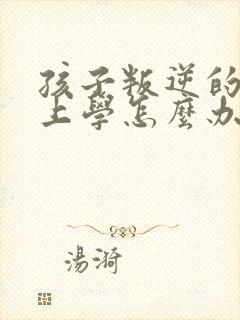 孩子叛逆的
上學怎麼办
湯漪